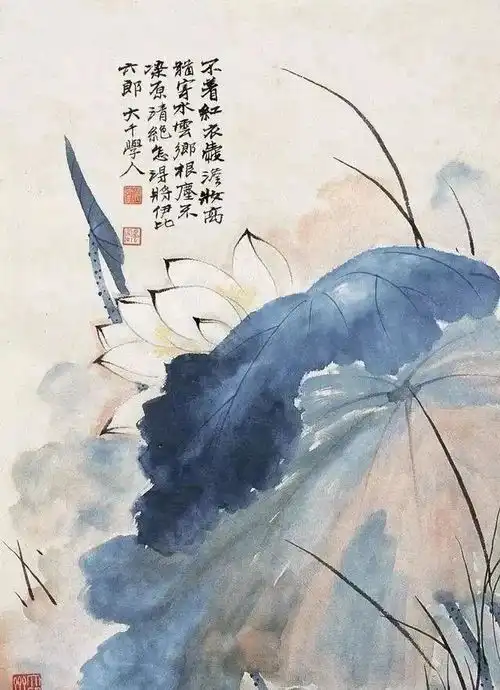 不着紅衣澹妝高
穿水雲鄉根塵不
染原清絕怎得將伊比
六郎 大千學人